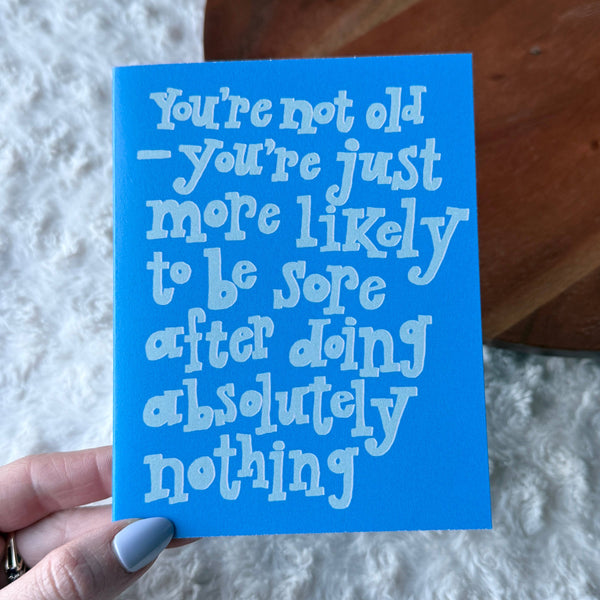 You're not old
—you're just
more likely
to be sore
after doing
absolutely
nothing